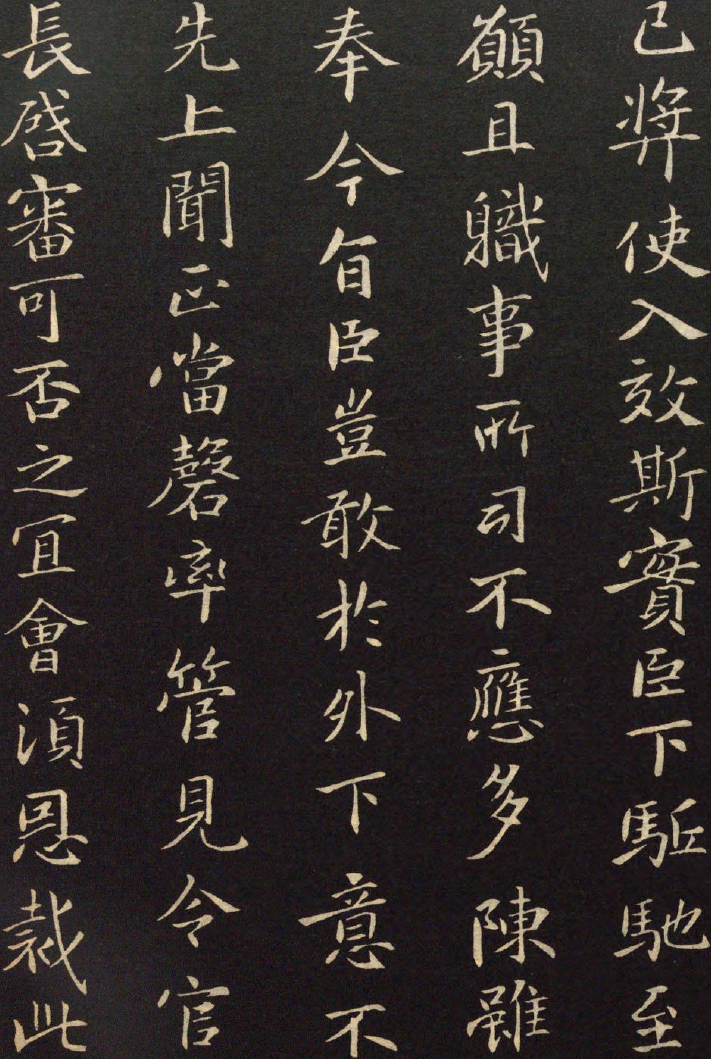 已弊使入效斯實臣下駈馳至
願且軄事所司不應多陳雖
奉今旨臣豈敢於外下意不
先上聞正當罄率管見今官
長啓審可否之冝會湏恩裁此